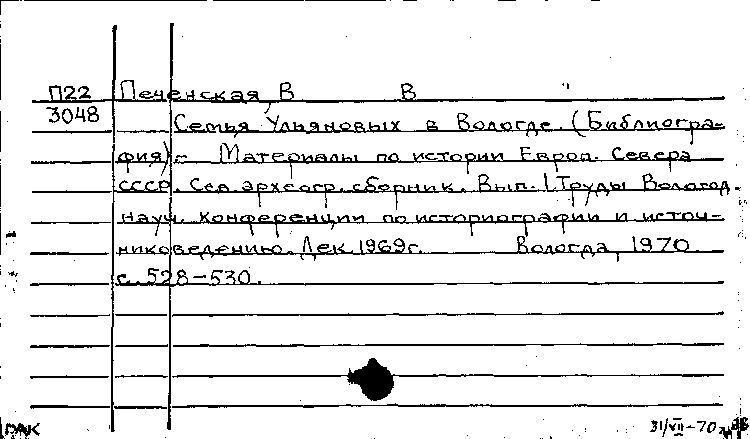 П22 Печенская, В В
3048 Семья Ульяновых в Вологде. (Библиогра-
фия) – Материалы по истории Европ. Севера
СССР. Сев. археогр. сборник. Вып. 1. Труды Вологод.
науч. конференции по историографии и источ-
никоведению. Дек. 1969г. Вологда, 1970
с. 528–530.
РАК 31/VII–70